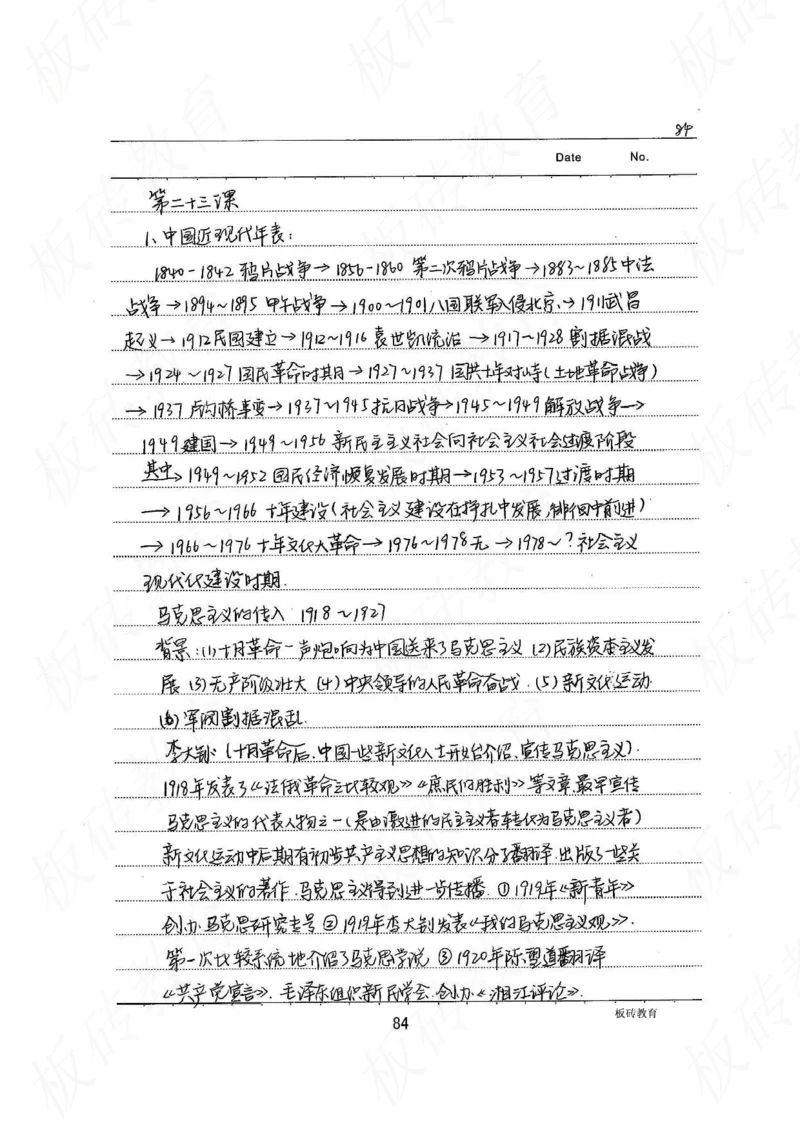 84
Date No.
第二十三课
1、中国近现代年表：
1840-1842 鸦片战争→1856-1860 第二次鸦片战争→1883~1885中法
战争→1894~1895 甲午战争→1900~1901八国联军入侵北京、→1911武昌
起义→1912民国建立→1912~1916袁世凯统治→1917~1928割据混战
→1924~1927国民革命时期→1927~1937国共十年对峙(土地革命战争)
→1937卢沟桥事变→1937~1945抗日战争→1945~1949解放战争→
1949建国→1949~1956 新民主主义社会向社会主义社会过渡阶段
其中→1949~1952国民经济恢复发展时期→1953~1957过渡时期
→1956~1966 十年建设(社会主义建设在挣扎中发展,徘徊中前进)
→1966~1976十年文化大革命→1976~1978无→1978~？社会主义
现代化建设时期.
马克思主义的传入 1918~1927
背景：(1)十月革命一声炮响为中国送来了马克思主义 (2)民族资本主义发
展 (3)无产阶级壮大 (4)中央领导的人民革命奋战.(5)新文化运动
(6)军阀割据混乱.
李大钊：(十月革命后,中国一些新文化人士开始介绍、宣传马克思主义).
1918年发表了《法俄革命之比较观》《庶民的胜利》等文章,最早宣传
马克思主义的代表人物之一(是由激进的民主主义者转化为马克思主义者)
新文化运动中后期有初步共产主义思想的知识分子翻译.出版了一些关
于社会主义的著作.马克思主义得到进一步传播.①1919年《新青年》
创办马克思研究专号②1919年李大钊发表《我的马克思主义观》.
第一次比较系统地介绍了马克思学说 ③1920年陈望道翻译
《共产党宣言》.毛泽东组织新民学会.创办《湘江评论》.
84
板砖教育